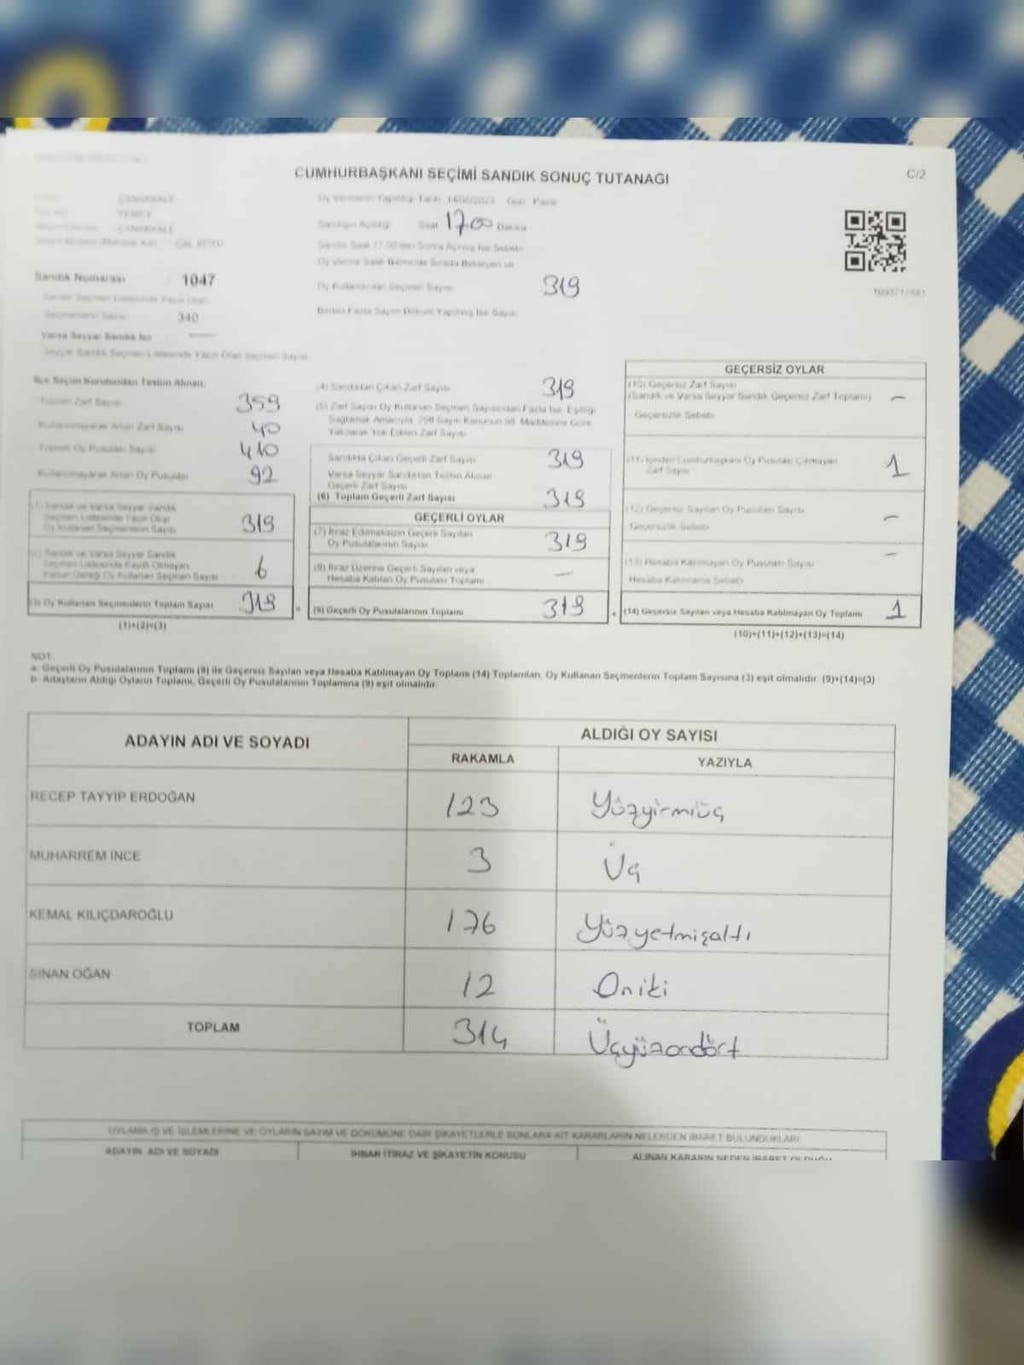 CUMHURBAŞKANI SEÇİMİ SANDIK SONUÇ TUTANAĞI
C/2
ÇANAKKALE
YENİCE
ÇANAKKALE
Oy Vermenin Yapıldığı Tarih 14/05/2023 Gün Pazar
Sandığın Açıldığı Saat 17.00 Dakika
Sandık Numarası 1047
340
Varsa Seyyar Sandık No
Seyyar Sandık Seçmen Listesinde Yazılı Olan Seçmen Sayısı
Oy Kullandırılan Seçmen Sayısı 319
Birden Fazla Sayım Döküm Yapılmış İse Sayısı
İlçe Seçim Kurulundan Teslim Alınan:
Toplam Zarf Sayısı 359
Kullanılmayarak Artan Zarf Sayısı 40
Toplam Oy Pusulası Sayısı 410
Kullanılmayarak Artan Oy Pusulası 92
(1) Sandık ve Varsa Seyyar Sandık
Seçmen Listesinde Yazılı Olup
Oy Kullanan Seçmenlerin Sayısı 319
(2) Sandık ve Varsa Seyyar Sandık
Seçmen Listesinde Kaydı Olmayan
Oy Kullanan Seçmen Sayısı 6
(3) Oy Kullanan Seçmenlerin Toplam Sayısı 319
(1)+(2)=(3)
(4) Sandıktan Çıkan Zarf Sayısı 319
(5) Zarf Sayısı Oy Kullanan Seçmen Sayısından Fazla İse, Eşitliği
Sağlamak Amacıyla, 298 Sayılı Kanunun 98. Maddesine Göre
Yakılarak Yok Edilen Zarf Sayısı
Sandıkta Çıkan Geçerli Zarf Sayısı 319
Varsa Seyyar Sandıktan Teslim Alınan
Geçerli Zarf Sayısı
(6) Toplam Geçerli Zarf Sayısı 319
GEÇERLİ OYLAR
(7) İtiraz Edilmeksizin Geçerli Sayılan
Oy Pusulalarının Sayısı 319
(8) İtiraz Üzerine Geçerli Sayılan veya
Hesaba Katılan Oy Pusulası Toplamı —
(9) Geçerli Oy Pusulalarının Toplamı 319
GEÇERSİZ OYLAR
(10) Geçersiz Zarf Sayısı
(Sandık ve Varsa Seyyar Sandık, Geçersiz Zarf Toplamı) —
Geçersizlik Sebebi
(11) İçinden Cumhurbaşkanı Oy Pusulası Çıkmayan
Zarf Sayısı 1
(12) Geçersiz Sayılan Oy Pusulası Sayısı —
Geçersizlik Sebebi
(13) Hesaba Katılmayan Oy Pusulası Sayısı —
Hesaba Katılmama Sebebi
(14) Geçersiz Sayılan veya Hesaba Katılmayan Oy Toplamı 1
(10)+(11)+(12)+(13)=(14)
NOT:
a- Geçerli Oy Pusulalarının Toplamı (9) ile Geçersiz Sayılan veya Hesaba Katılmayan Oy Toplamı (14) Toplamları, Oy Kullanan Seçmenlerin Toplam Sayısına (3) eşit olmalıdır. (9)+(14)=(3)
b- Adayların Aldığı Oyların Toplamı, Geçerli Oy Pusulalarının Toplamına (9) eşit olmalıdır.
ADAYIN ADI VE SOYADI
ALDIĞI OY SAYISI
RAKAMLA YAZIYLA
RECEP TAYYİP ERDOĞAN 123 Yüzyirmiüç
MUHARREM İNCE 3 Üç
KEMAL KILIÇDAROĞLU 176 Yüzyetmişaltı
SİNAN OĞAN 12 Oniki
TOPLAM 314 Üçyüzondört
OYLAMA İŞ VE İŞLEMLERİNE VE OYLARIN SAYIM VE DÖKÜMÜNE DAİR ŞİKAYETLERLE BUNLARA AİT KARARLARIN NELERDEN İBARET BULUNDUKLARI
ADAYIN ADI VE SOYADI
İHBAR İTİRAZ VE ŞİKAYETİN KONUSU
ALINAN KARARIN NEDEN İBARET OLDUĞU